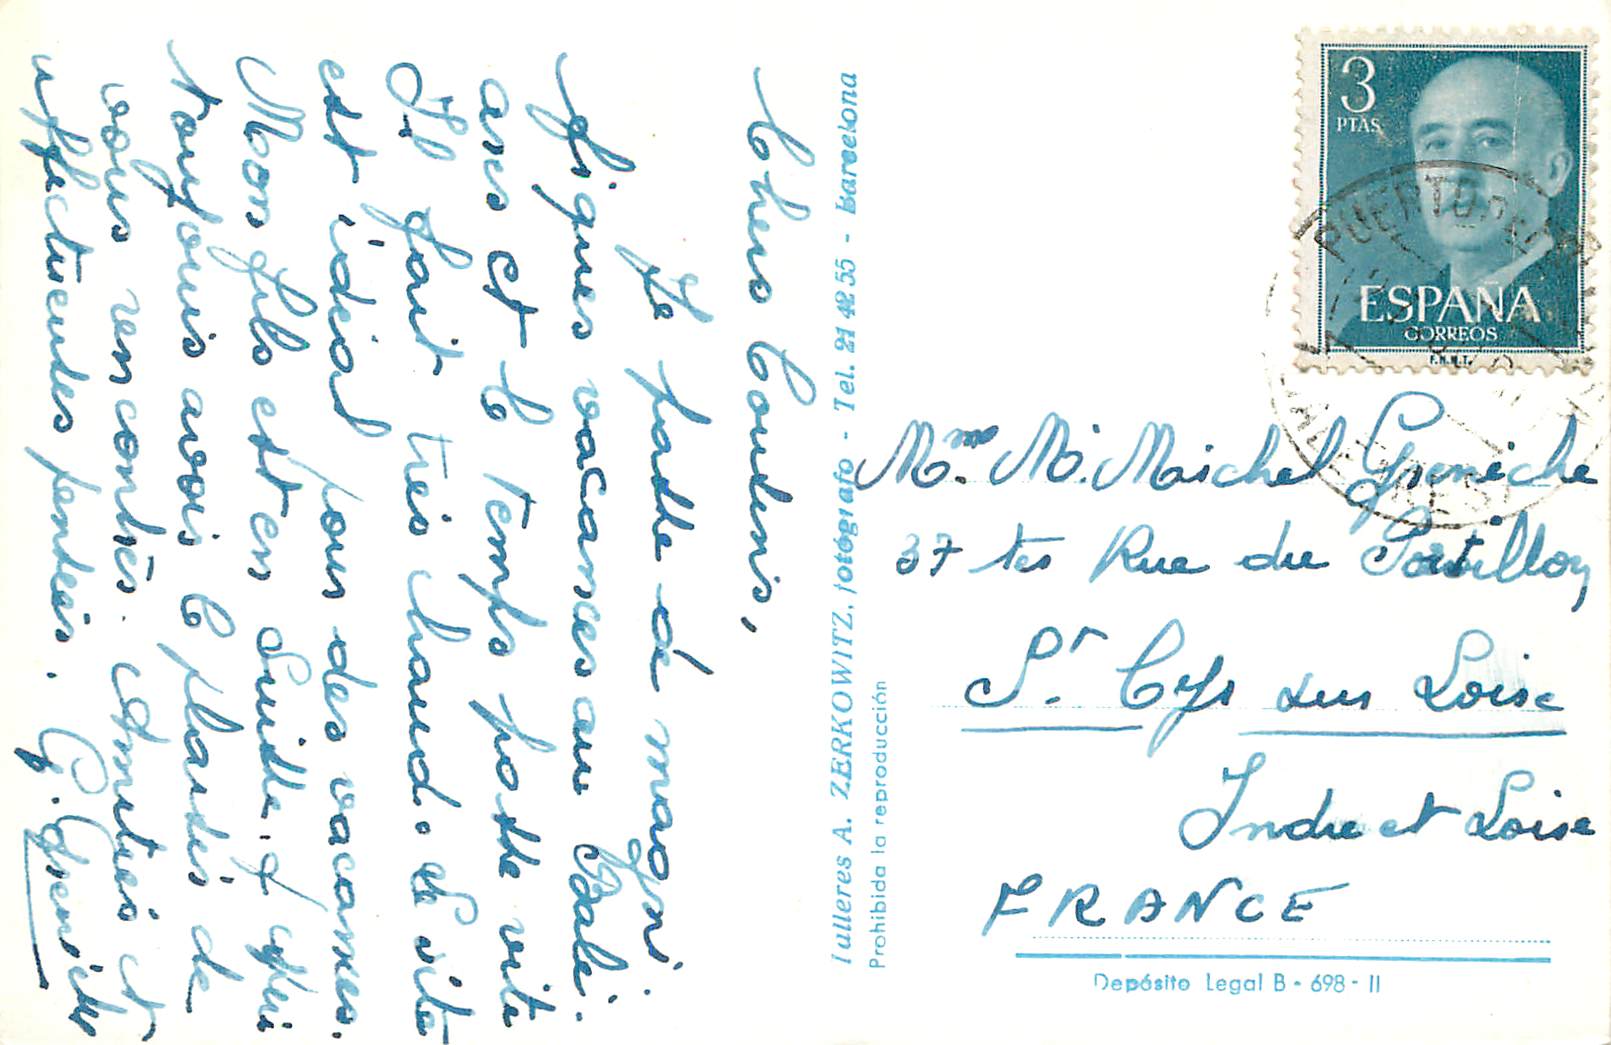 Chers Cousins,
Je passe de magni
fiques vacances aux Balé-
ares et le temps passe vite
Il fait très chaud. Le site
est idéal pour des vacances.
Mon fils est en Suisse. J'espère
toujours avoir le plaisir de
vous rencontrer. Amitiés et
affectueuses pensées. G. Greniche
Talleres A. ZERKOWITZ, fotógrafo - Tel. 21 42 55 - Barcelona
Prohibida la reproducción
3
PTAS
ESPAÑA
CORREOS
F.N.M.T.
Mme M. Michel Greniche
37 ter Rue du Portillon
St. Cyr sur Loire
Indre et Loire
FRANCE
Depósito Legal B - 698 - II